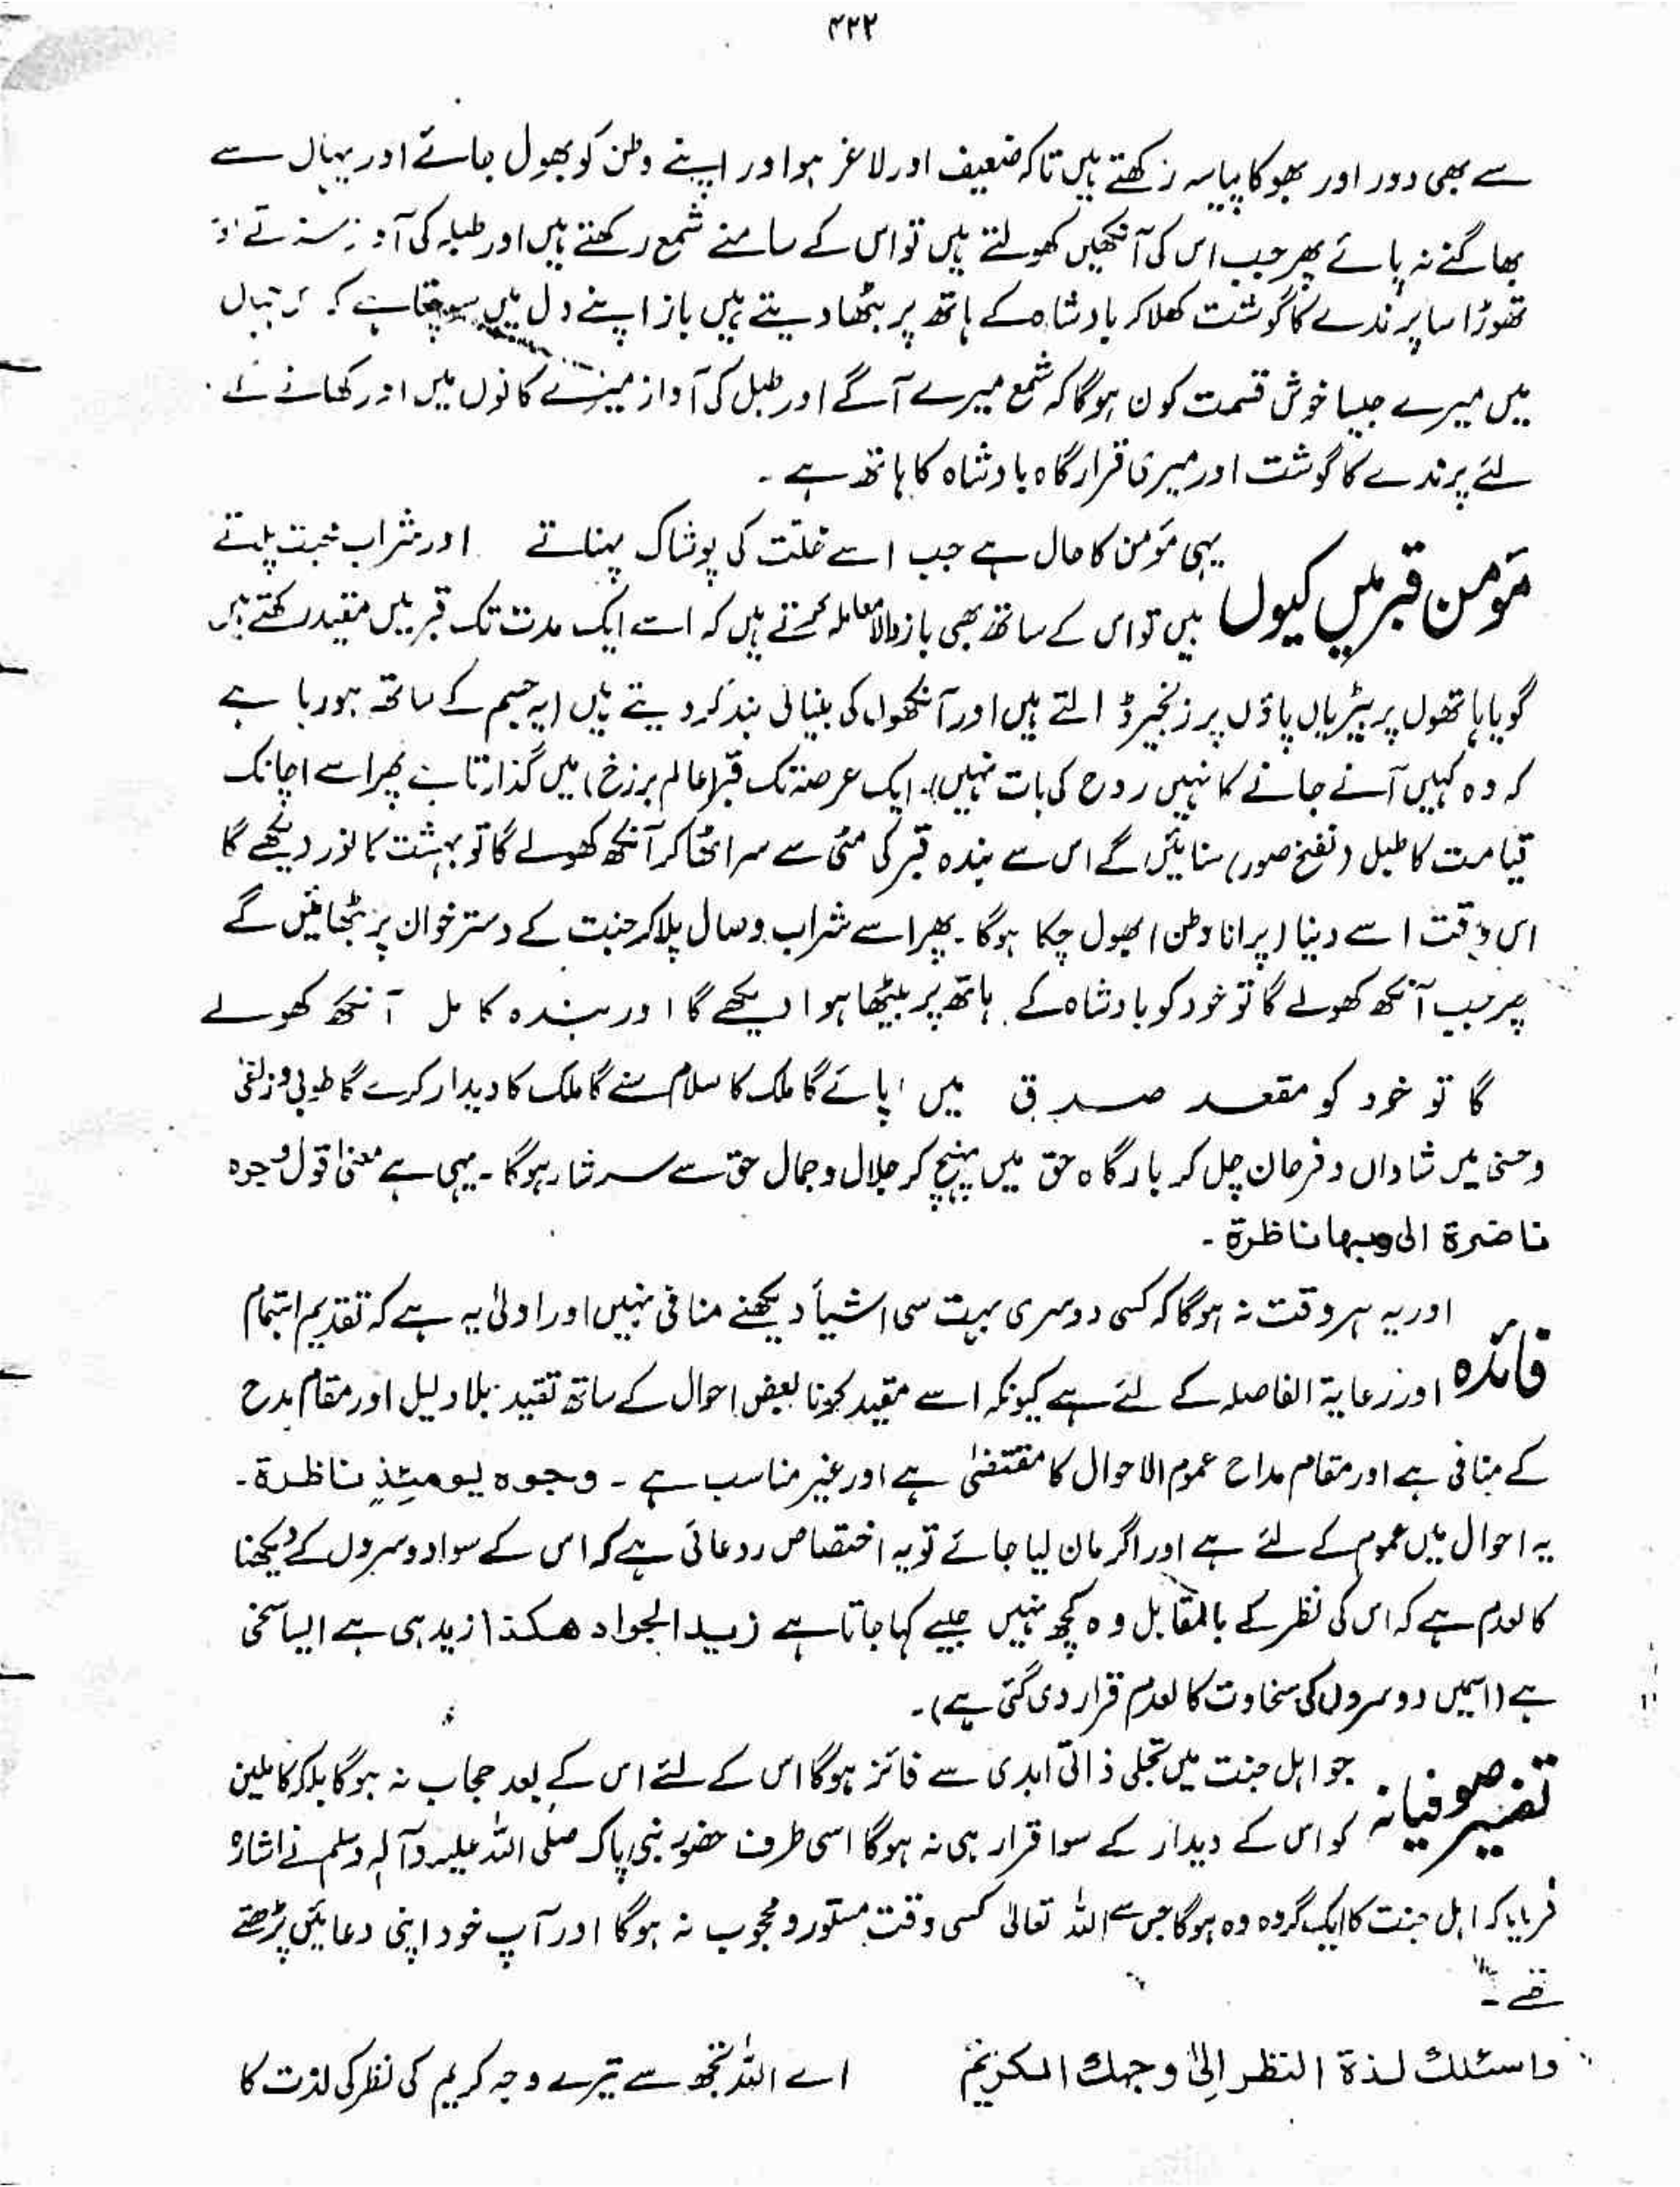 ۴۲۲
سے بھی دور اور بھوکا پیاسہ رکھتے ہیں تاکہ ضعیف اور لاغر ہو اور اپنے وطن کو بھول جائے اور یہاں سے
بھاگنے نہ پائے پھر جب اس کی آنکھیں کھولتے ہیں تو اس کے سامنے شمع رکھتے ہیں اور طبلہ کی آواز سناتے اور
تھوڑا سا پرندے کا گوشت کھلا کر بادشاہ کے ہاتھ پر بٹھا دیتے ہیں باز اپنے دل میں سوچتا ہے کہ
میں میرے جیسا خوش قسمت کون ہوگا کہ شمع میرے آگے اور طبل کی آواز میرے کانوں میں اور کھانے کے
لئے پرندے کا گوشت اور میری قرار گاہ بادشاہ کا ہاتھ ہے ۔
مؤمن قبر میں کیوں
یہی مؤمن کا حال ہے جب اسے خلّت کی پوشاک پہناتے اور شراب محبت پلاتے
ہیں تو اس کے ساتھ بھی باز والا معاملہ کرتے ہیں کہ اسے ایک مدت تک قبر میں مقید رکھتے ہیں
گویا ہاتھوں پر بیڑیاں پاؤں پر زنجیر ڈالتے ہیں اور آنکھوں کی بینائی بند کر دیتے ہیں (یہ جسم کے ساتھ ہو رہا ہے
کہ وہ کہیں آنے جانے کا نہیں روح کی بات نہیں)۔ ایک عرصہ تک قبر (عالم برزخ) میں گذارتا ہے پھر اسے اچانک
قیامت کا طبل (نفخ صور) سنائیں گے اس سے بندہ قبر کی مٹی سے سر اٹھا کر آنکھ کھولے گا تو بہشت کا نور دیکھے گا
اس وقت اسے دنیا (پرانا وطن) بھول چکا ہوگا ۔ پھر اسے شراب وصال پلا کر جنت کے دستر خوان پر بٹھائیں گے
پھر جب آنکھ کھولے گا تو خود کو بادشاہ کے ہاتھ پر بیٹھا ہوا دیکھے گا اور بندہ کامل آنکھ کھولے
گا تو خود کو مقعد صدق میں پائے گا ملک کا سلام سنے گا ملک کا دیدار کرے گا طوبیٰ و زلفیٰ
و حسنیٰ میں شاداں و فرحان چل کر بارگاہ حق میں پہنچ کر جلال و جمال حق سے سرشار ہوگا ۔ یہی ہے معنیٰ قول وجوہ
ناضرة الی ربها ناظرة ۔
فائدہ
اور یہ ہر وقت نہ ہوگا کہ کسی دوسری بہت سی اشیأ دیکھنے منافی نہیں اور اولیٰ یہ ہے کہ تقدیم اہتمام
اور رعایۃ الفاصلہ کے لئے ہے کیونکہ اسے مقید کرنا بعض احوال کے ساتھ تقید بلا دلیل اور مقام مدح
کے منافی ہے اور مقام مداح عموم الاحوال کا مقتضیٰ ہے اور غیر مناسب ہے ۔ وجوہ یومئذٍ ناظرة ۔
یہ احوال میں عموم کے لئے ہے اور اگر مان لیا جائے تو یہ اختصاص ردعائی ہے کہ اس کے سوا دوسروں کے دیکھنا
کالعدم ہے کہ اس کی نظر کے بالمقابل وہ کچھ نہیں جیسے کہا جاتا ہے زید الجواد هكذا زید ہی ہے ایسا سخی
ہے (اسمیں دوسروں کی سخاوت کالعدم قرار دی گئی ہے)۔
تفسیر صوفیانہ
جو اہل جنت میں تجلی ذاتی ابدی سے فائز ہوگا اس کے لئے اس کے بعد حجاب نہ ہوگا بلکہ کاملین
کو اس کے دیدار کے سوا قرار ہی نہ ہوگا اسی طرف حضور نبی پاک صلی اللہ علیہ وآلہٖ وسلم نے اشارہ
فرمایا کہ اہل جنت کا ایک گروہ وہ ہوگا جس سے اللہ تعالیٰ کسی وقت مستور و محجوب نہ ہوگا اور آپ خود اپنی دعائیں پڑھتے
تھے ۔
واسئلك لذة النظر الیٰ وجهك الكریم اے اللہ تجھ سے تیرے وجہ کریم کی نظر کی لذت کا